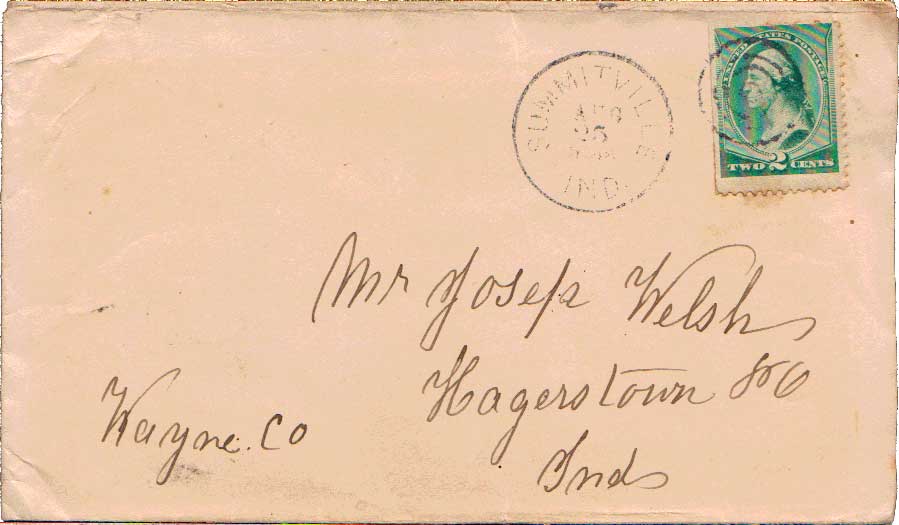 UNITED STATES POSTAGE
TWO 2 CENTS
SUMMITVILLE
AUG
IND.
Mr Joseph Welsh
Hagerstown PO
Wayne. Co
Ind